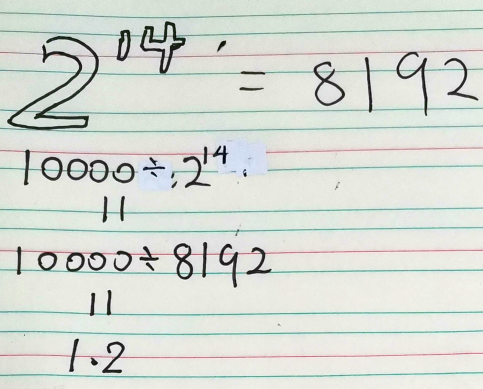 2¹⁴ = 8192
10000÷2¹⁴
=
10000÷8192
=
1.2